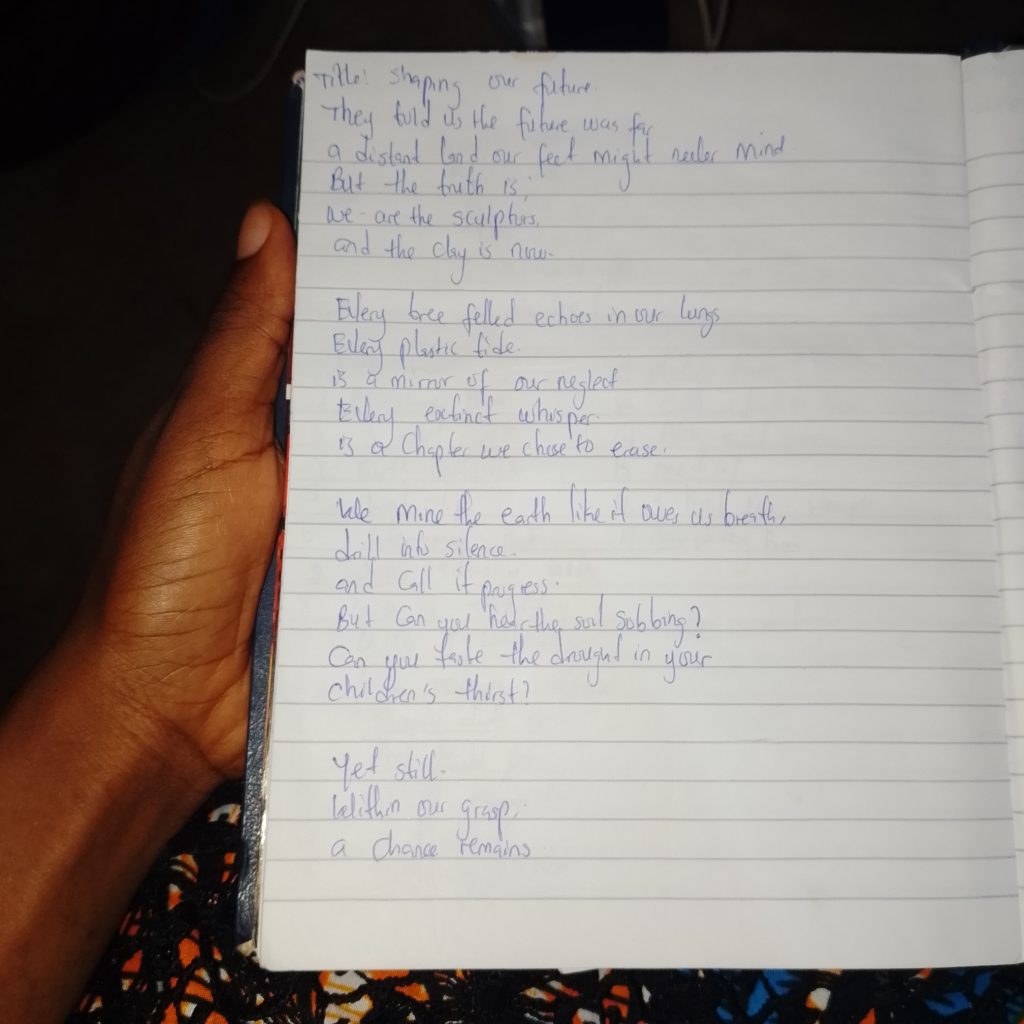 Title: Shaping our future.
They told us the future was far
a distant land our feet might never mind.
But the truth is,
we are the sculptors,
and the clay is now.
Every tree felled echoes in our lungs
Every plastic tide.
is a mirror of our neglect
Every extinct whisper.
is a Chapter we chose to erase.
We mine the earth like it owes us breath,
drill into silence.
and Call it progress.
But Can you hear the soil sobbing?
Can you taste the drought in your
children's thirst?
Yet still.
Within our grasp,
a chance remains